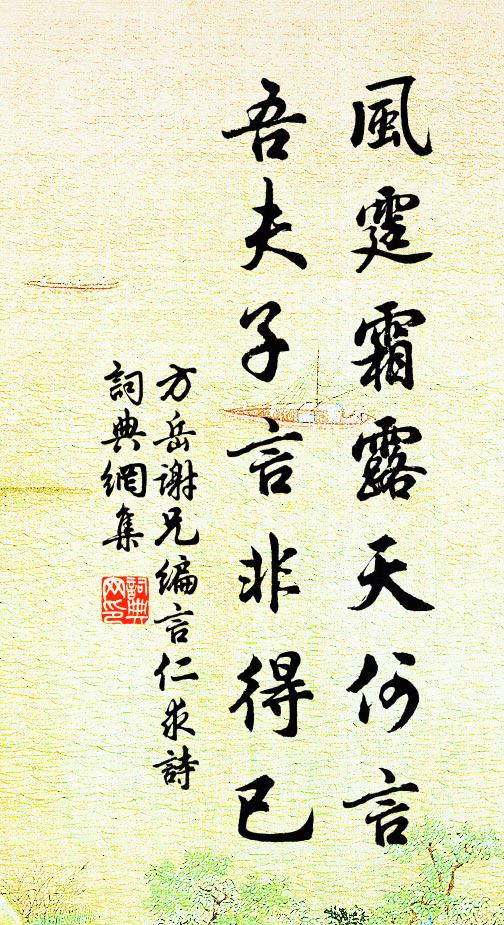 風霆霜露天何言
吾夫子言非得已
方岳謝兄編言仁求詩
詞典網集
詞典
网印